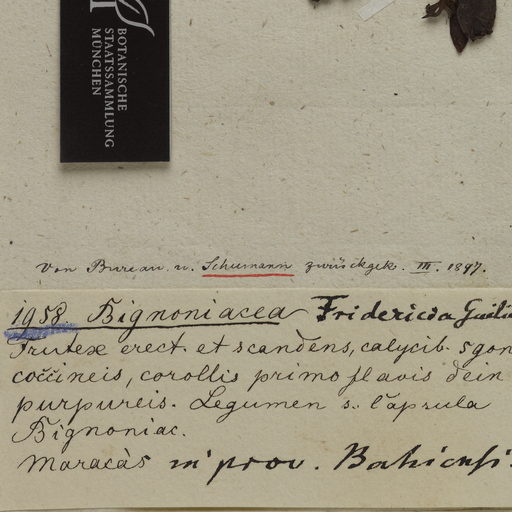 BOTANISCHE
STAATSSAMMLUNG
MÜNCHEN
Von Bureau u. Schumann zurückgek. III. 1897.
1958. Bignoniacea Fridericia Guilie
Frutex erect. et scandens, calycib. 5gon
coccineis, corollis primo flavis dein
purpureis. Legumen s. Capsula
Bignoniac.
Maracàs in prov. Bahiensi.